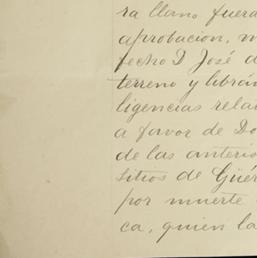 ra llano fuera
aprobacion, m
fecho D José d
terreno y librán
ligencias rela
a favor de Do
de las anterio
sitios de Güér
por muerte
ca, quien la